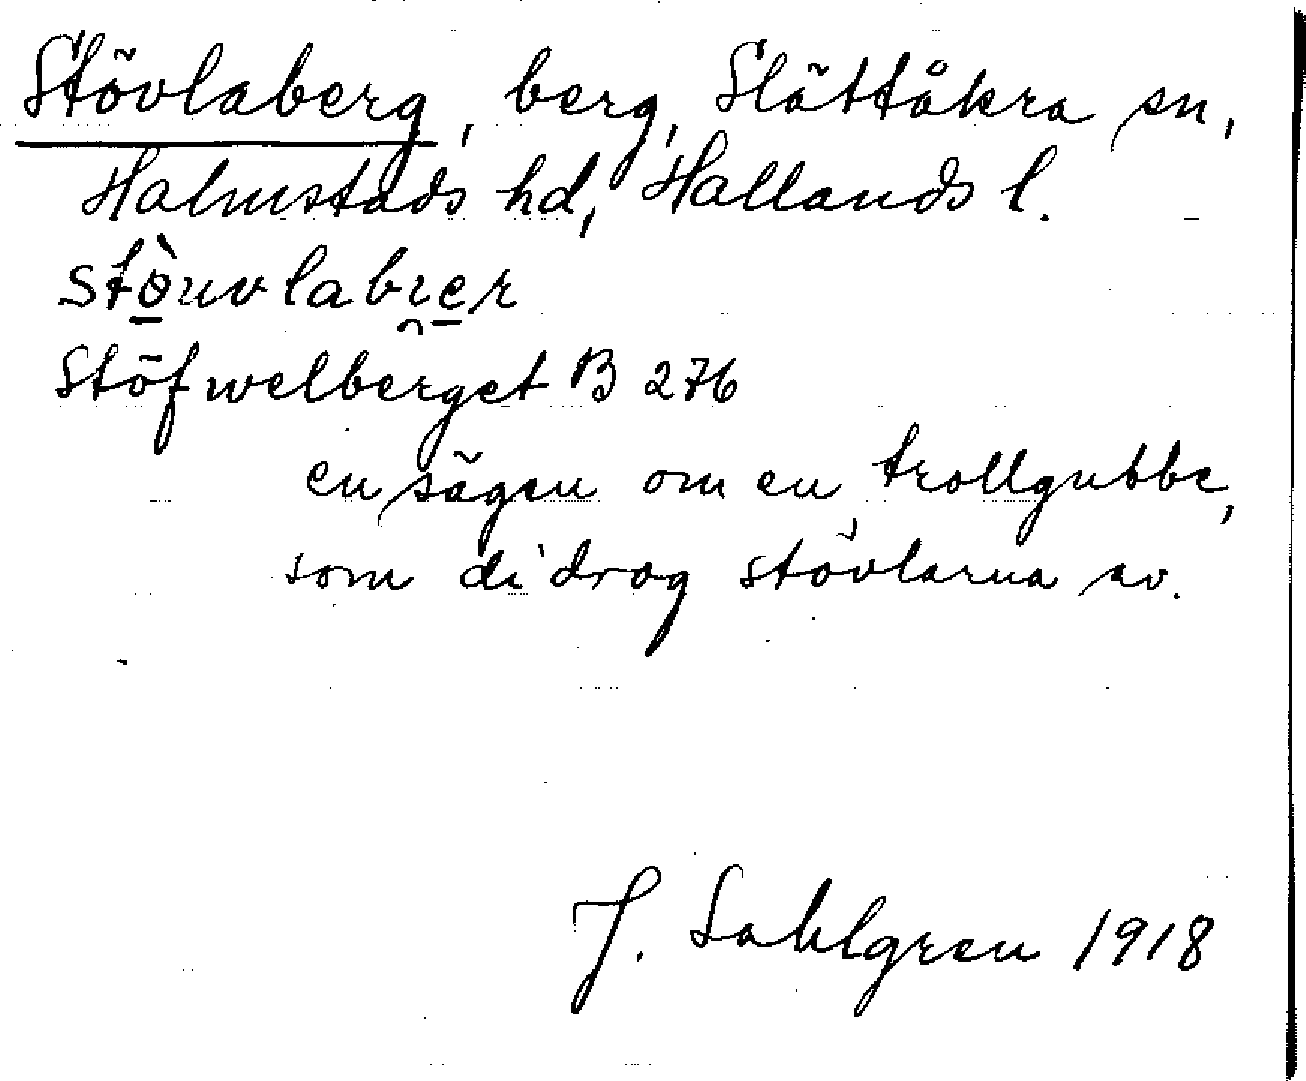 Stövlaberg, berg, Slättåkra sn,
Halmstads hd, Hallands l.
Stöfwelberget B 276
en sägen om en trollgubbe,
som di drog stövlarna av.
J. Sahlgren 1918